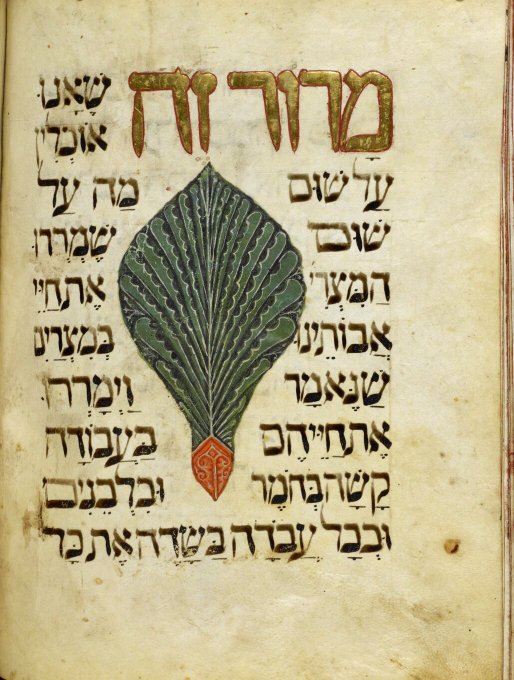 מרור זה שאנו
אוכלין
על שום מה על
שום שמררו
המצרי את חיי
אבותינו במצרים
שנאמר וימררו
את חייהם בעבודה
קשה בחמר ובלבנים
ובכל עבדה בשדה את כל